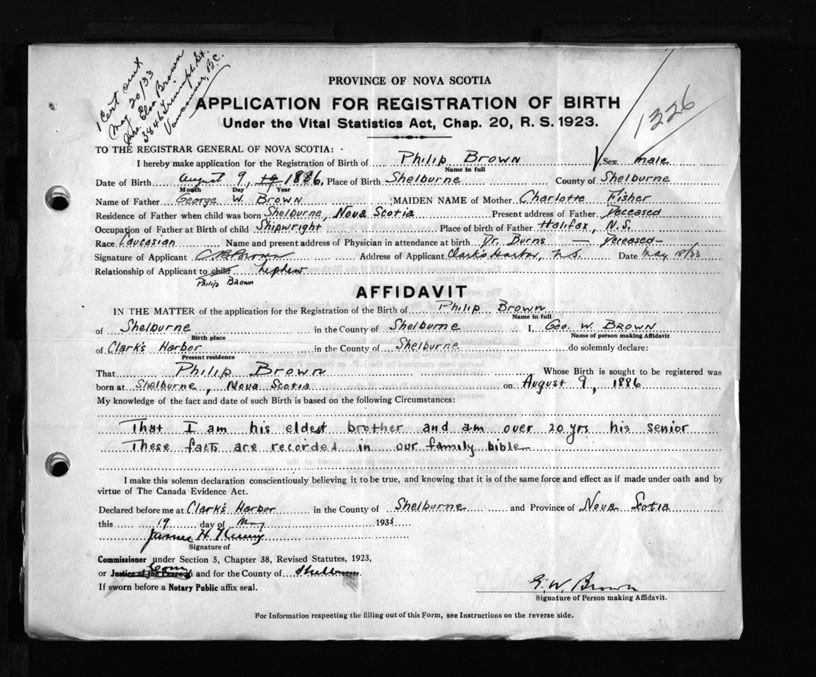 1 Cert sent
May 20/33
Mrs. Elsa Brown
3846 Triumph St.
Vancouver, B.C.
1326
PROVINCE OF NOVA SCOTIA
APPLICATION FOR REGISTRATION OF BIRTH
Under the Vital Statistics Act, Chap. 20, R. S. 1923.
TO THE REGISTRAR GENERAL OF NOVA SCOTIA:
I hereby make application for the Registration of Birth of Philip Brown Sex male
Name in full
Date of Birth August 9, 1886, Place of Birth Shelburne County of Shelburne
Month Day Year
Name of Father George W. Brown ; MAIDEN NAME of Mother Charlotte Fisher
Residence of Father when child was born Shelburne, Nova Scotia Present address of Father Deceased
Occupation of Father at Birth of child Shipwright Place of birth of Father Halifax, N.S.
Race Caucasian Name and present address of Physician in attendance at birth Dr. Burns — Deceased —
Signature of Applicant Brown Address of Applicant Clark's Harbor, N.S. Date May 18/33
Relationship of Applicant to child nephew
Philip Brown
AFFIDAVIT
IN THE MATTER of the application for the Registration of the Birth of Philip Brown
Name in full
of Shelburne in the County of Shelburne I, Geo. W. Brown
Birth place Name of person making Affidavit
of Clark's Harbor in the County of Shelburne do solemnly declare:
Present residence
That Philip Brown Whose Birth is sought to be registered was
born at Shelburne, Nova Scotia on August 9, 1886
My knowledge of the fact and date of such Birth is based on the following Circumstances:
That I am his eldest brother and am over 20 yrs his senior
These facts are recorded in our family bible
I make this solemn declaration conscientiously believing it to be true, and knowing that it is of the same force and effect as if made under oath and by
virtue of The Canada Evidence Act.
Declared before me at Clark's Harbor in the County of Shelburne and Province of Nova Scotia
this 19 day of May 193
James H.
Signature of
Commissioner under Section 5, Chapter 38, Revised Statutes, 1923,
or Justice of the Peace and for the County of Shelburne
If sworn before a Notary Public affix seal.
G. W. Brown
Signature of Person making Affidavit.
For Information respecting the filling out of this Form, see Instructions on the reverse side.